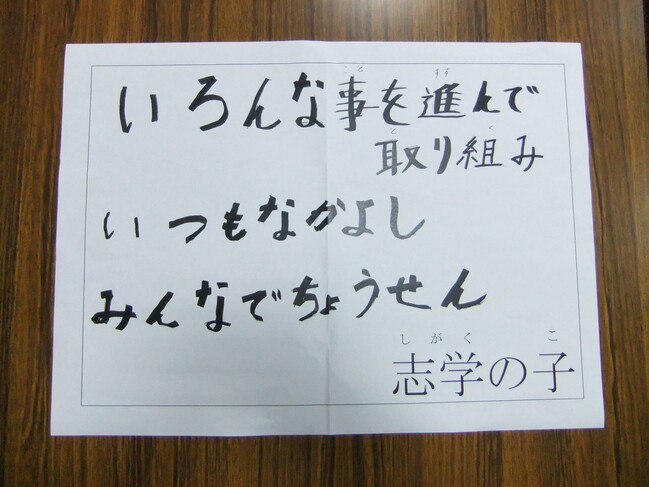 いろんな事を進んで
取り組み
いつもなかよし
みんなでちょうせん
志学の子